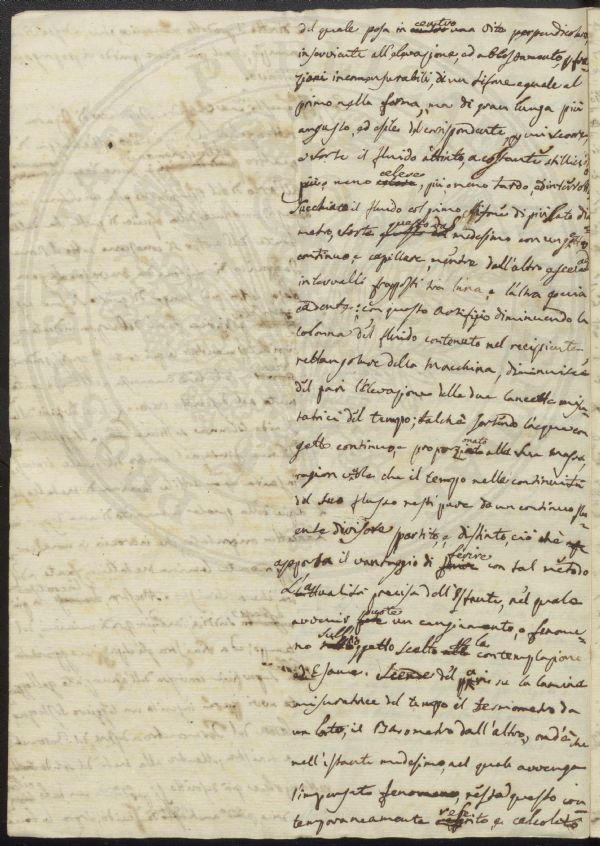 del quale posa in centro una vite perpendicolare
inserviente all'elevazione, ed abbassamento p fra
zioni incomensurabili, di un sifone eguale al
primo nella forma, ma di gran lunga più
angusto, ed esile del corrispondente,
e sorte il fluido
più, o meno celere, più o meno tardo
Succhiato il fluido col primo sifone di più lato dia
metro, sorte questo dal medesimo con un getto
continuo, e capillare, mentre dall'altro
intervalli frapposti tra l'una, e l'altra goccia
cadente; con questo artifizio diminuendo la
colonna del fluido contenuto nel recipiente
rettangolare della Macchina, diminuisce
del pari l'elevazione delle due lancette misu
ratrici del tempo; talchè sortendo l'acqua con
getto continuo, e proporzionato alla sua massa,
ragion vuole che il tempo nella continuità
del suo flusso resti pure da un continuo flu
ente divisore partito, e distinto, ciò che
asporta il vantaggio di ferire con tal metodo
L'attualità precisa dell'Istante, nel quale
avvenir puote un cangiamento, o fenome
no sull'oggetto scelto alla contemplazione
ed Esame. Scende del pari se la lamina
misuratrice del tempo il termometro da
un lato, il Barometro dall'altro, ond'è che
nell'istante medesimo, nel quale avvenga
l'impensato fenomeno, resta questo con
temporaneamente riferito, e calcolato